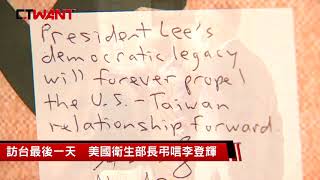 CTWANT
President Lee's
democratic legacy
will forever propel
the U.S.-Taiwan
relationship forward.
訪台最後一天 美國衛生部長弔唁李登輝